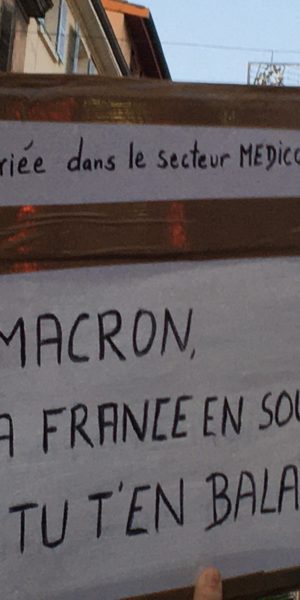 riée dans le secteur MEDICO
MACRON,
A FRANCE EN SOU
TU T'EN BALA